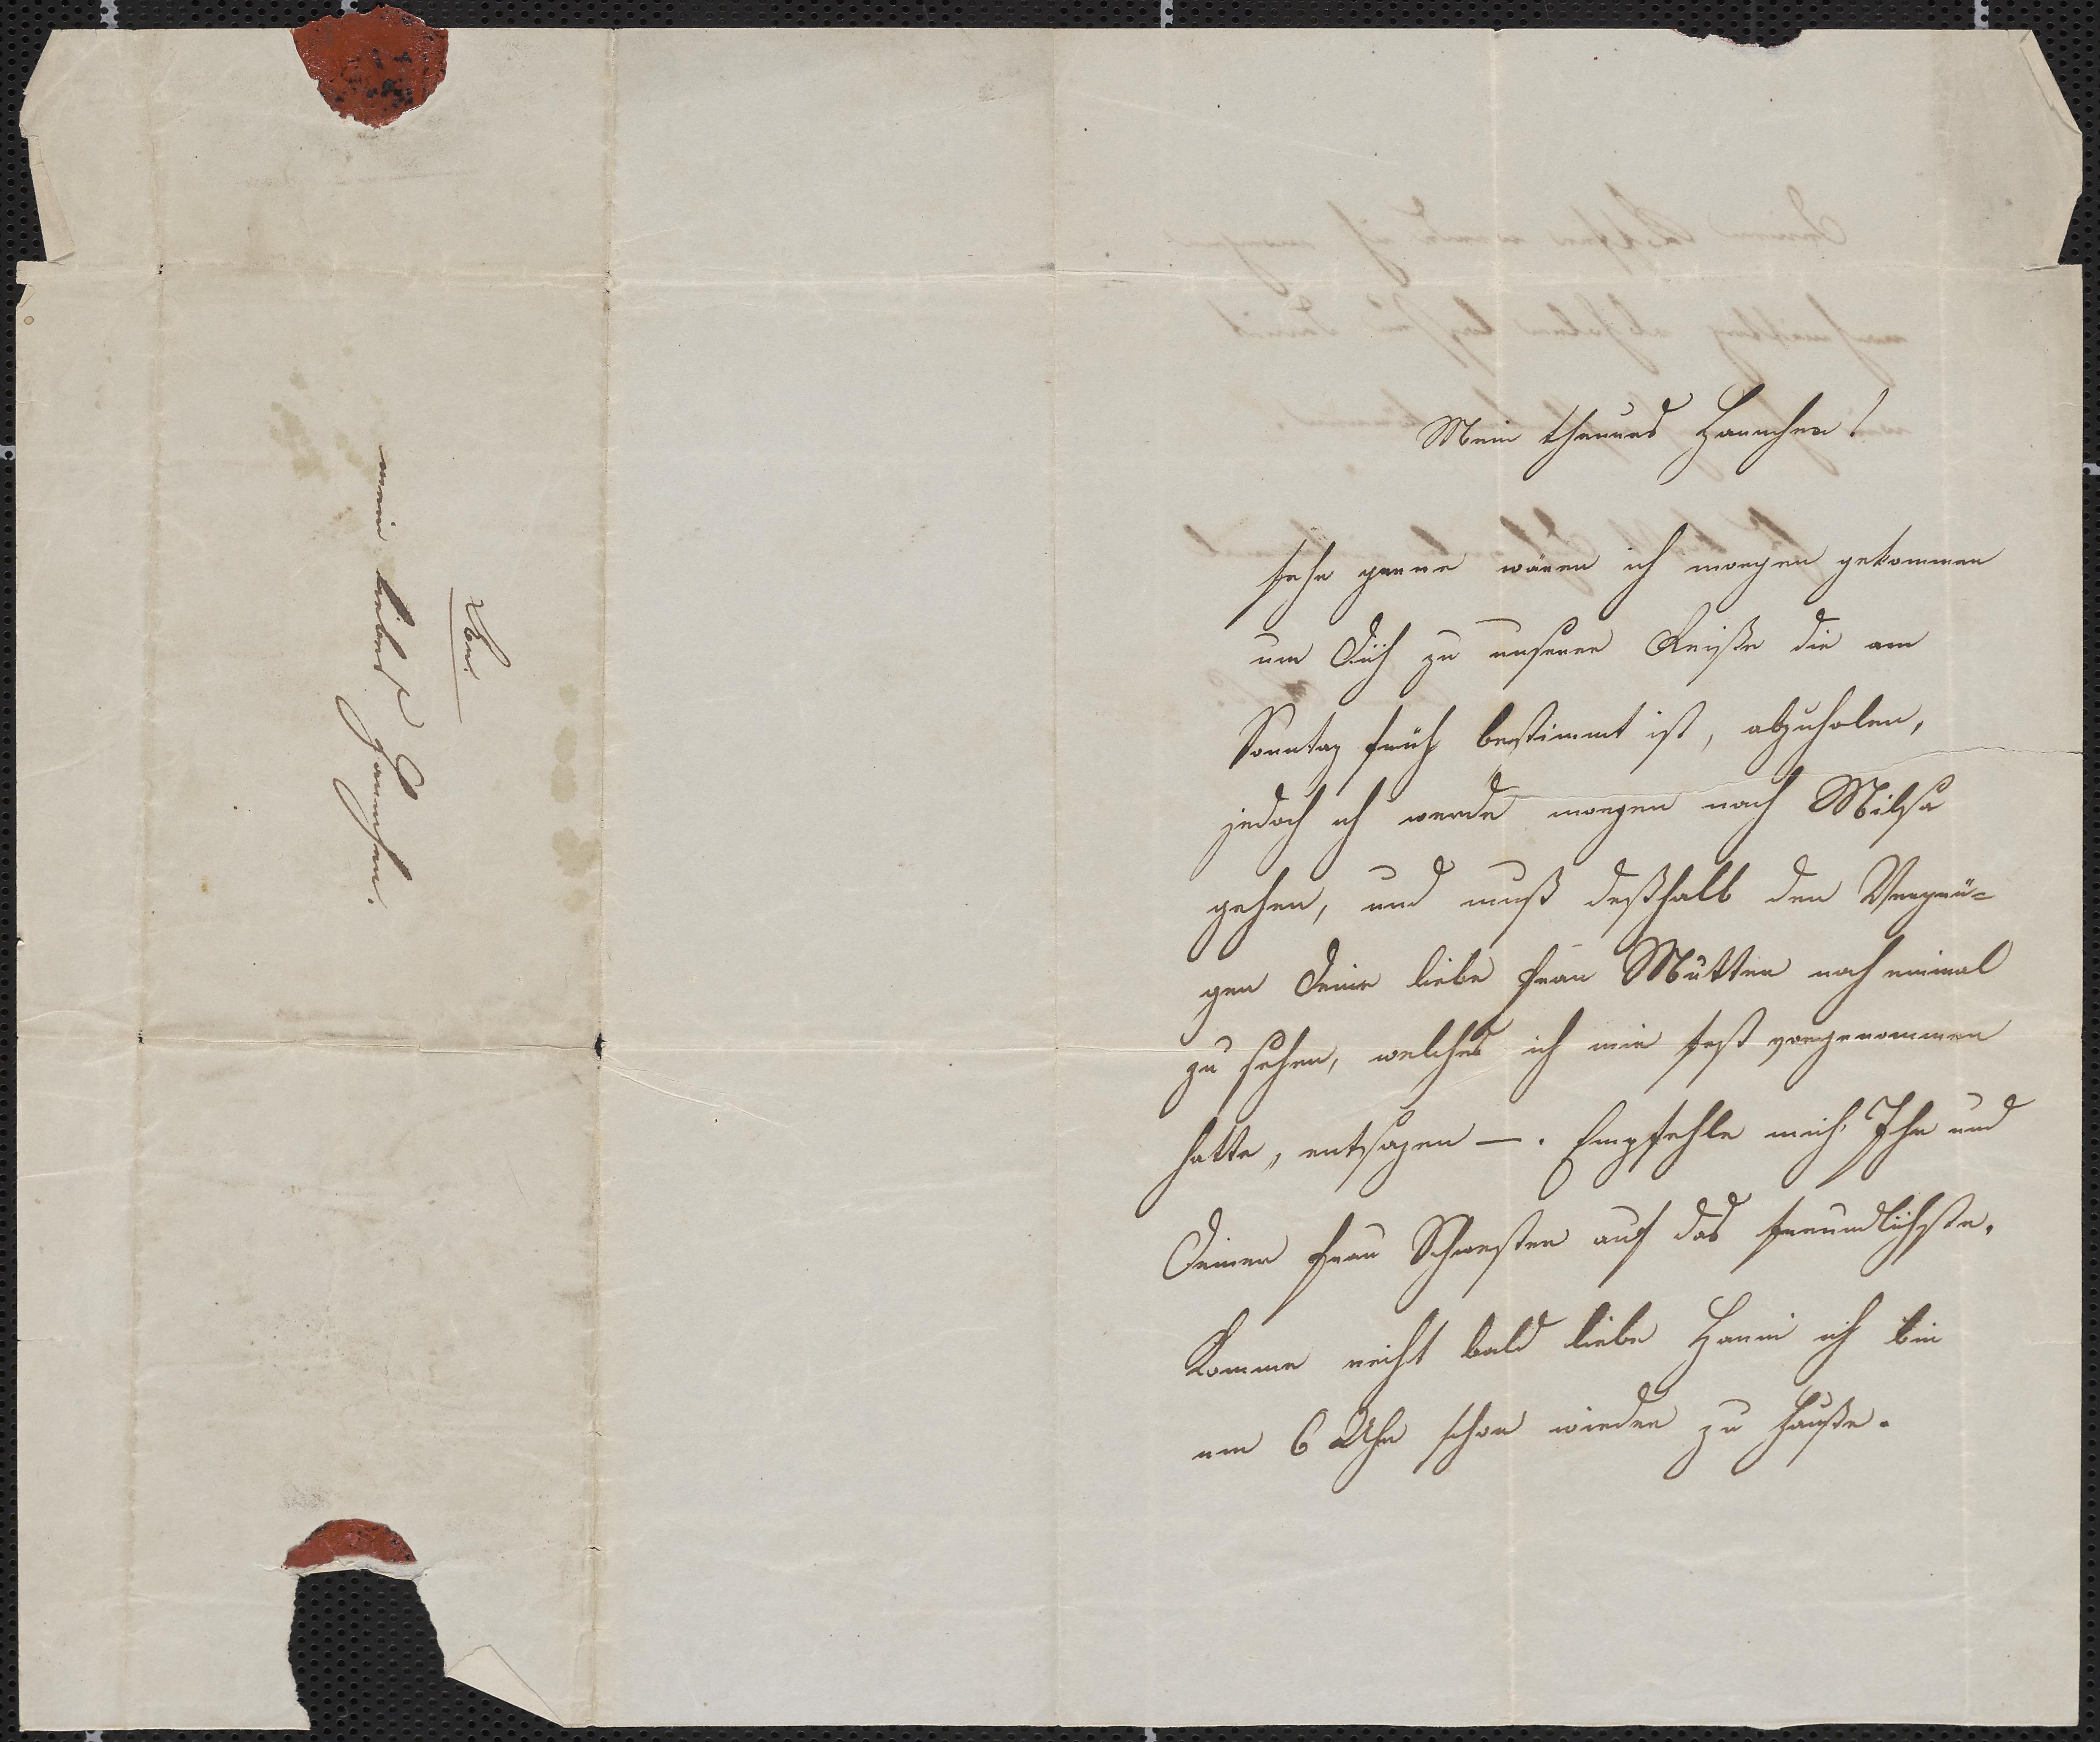 An
mein liebes Hannchen.
Mein theures Hannchen!
sehr gerne wären ich morgen gekommen
um Dich zu unserer Reiße die am
Sonntag früh bestimmt ist, abzuholen,
jedoch ich werde morgen nach Milsa
gehen, und muß deßhalb den Vergnü-
gen Deine liebe Frau Mutter noch einmal
zu sehen, welches ich mir fest vorgenommen
hatte, entsagen —. Empfehle mich Ihr und
Deiner Frau Schwester auf das freundlichste.
Komme recht bald liebe Hanni ich bin
um 6 Uhr schon wieder zu Hauße.